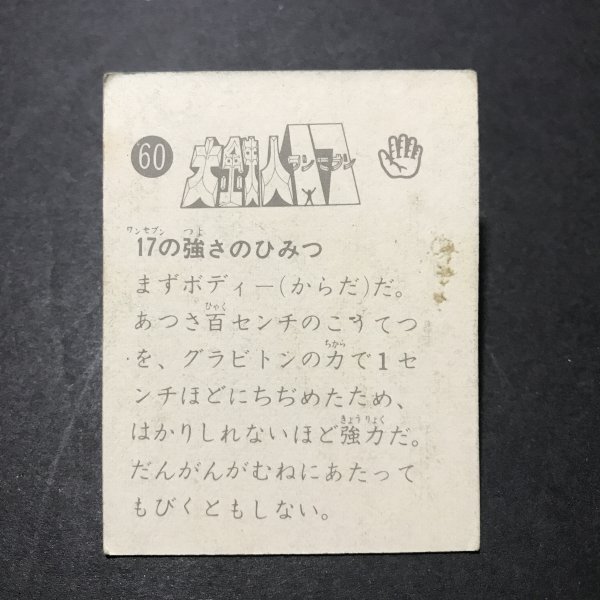 60
大鉄人17
ワンセブン
ワンセブン つよ
17の強さのひみつ
まずボディー(からだ)だ。
ひゃく
あつさ百センチのこうてつ
ちから
を、グラビトンの力で1セ
ンチほどにちぢめたため、
きょうりょく
はかりしれないほど強力だ。
だんがんがむねにあたって
もびくともしない。